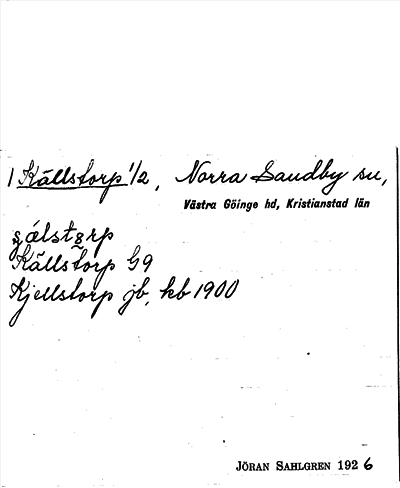 1 Källstorp 1/2, Norra Sandby sn,
Västra Göinge hd, Kristianstad län
Källstorp G9
Kjellstorp jb, kb 1900
JÖRAN SAHLGREN 1926